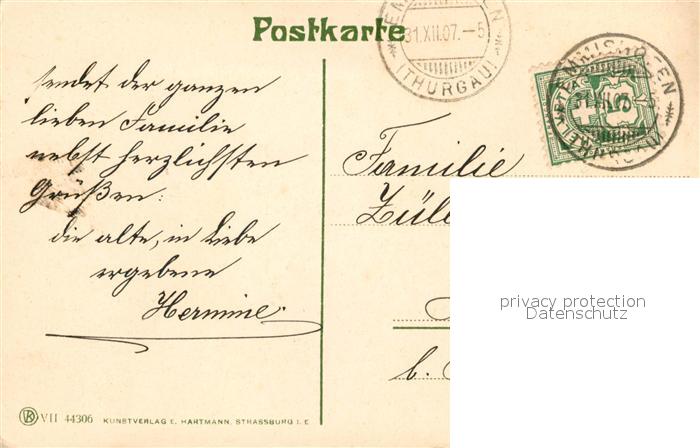 Postkarte
31.XII.07.—5
(THURGAU)
sendet der ganzen
lieben Familie
nebst herzlichsten
Grüßen:
die alte, in Liebe
ergebene
Hermine.
Familie
Zül
b.
privacy protection
Datenschutz
VII 44306 KUNSTVERLAG E. HARTMANN, STRASSBURG I. E.